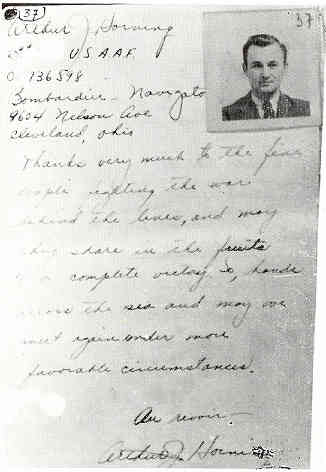 37
37
Arthur J Horning
U.S.A.A.F.
O 136598
Bombardier - Navigator
9604 Nelson Ave
Cleveland, Ohio
Thanks very much to the fine
people fighting the war
behind the lines, and may
they share in the fruits
of a complete victory. So, hands
across the sea and may we
meet again under more
favorable circumstances.
Au revoir -
Arthur J. Horning